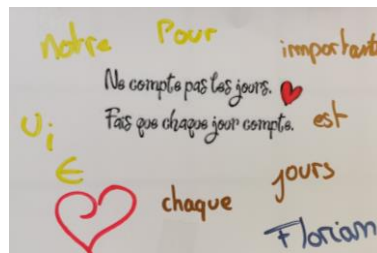 notre Pour important
Ne compte pas les jours.
Fais que chaque jour compte.
Vie est
chaque jours
Florian